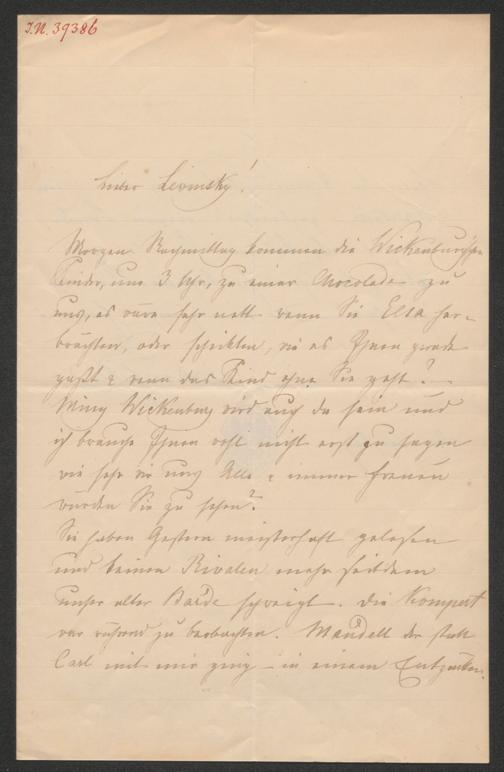 I.N. 39386
Lieber Lewinsky!
Morgen Nachmittag kommen die Wickenburg'schen
Kinder, um 3 Uhr, zu einer Chocolade zu
uns, es wäre sehr nett wenn Sie Elsa her-
brächten, oder schickten, wie es Ihnen gerade
paßt & wenn das Kind ohne Sie geht? –
Minny Wickenburg wird auch da sein und
ich brauche Ihnen wohl nicht erst zu sagen
wie sehr wir uns Alle & immer freuen
würden Sie zu sehen?
Sie haben Gestern meisterhaft gelesen
und keinen Rivalen mehr seitdem
unser alter schweigt. Die Kompert
war rührend zu beobachten. der statt
Carl mit mir ging – in einem Entzücken.